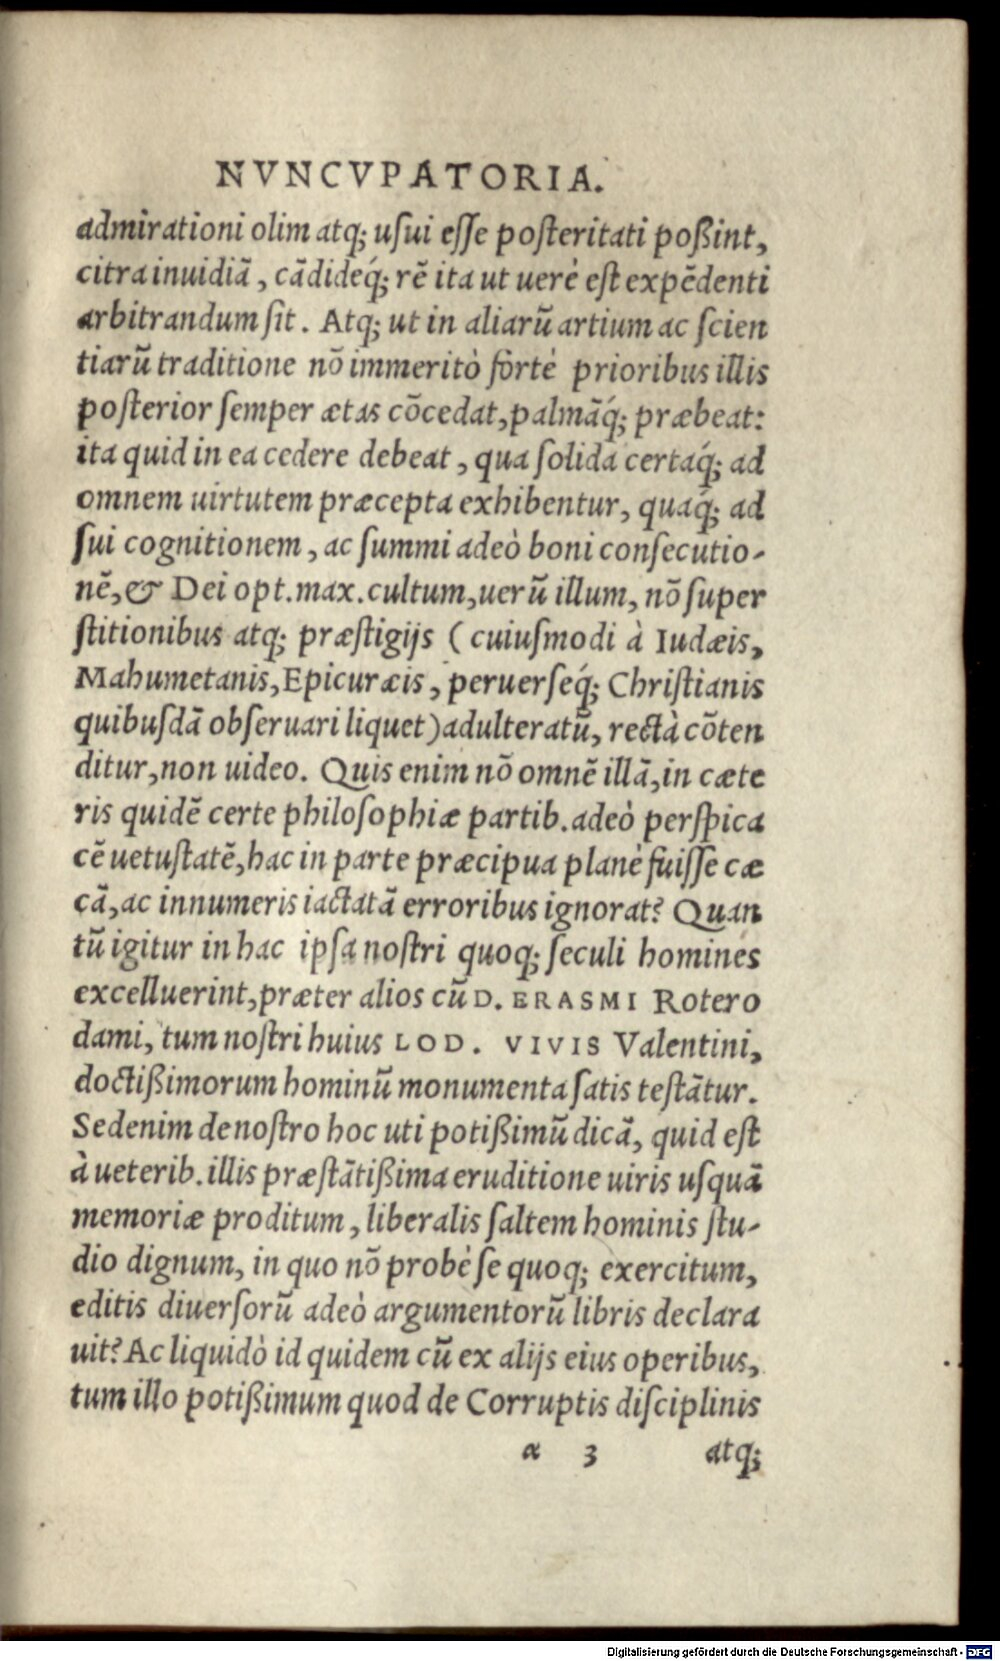 NVNCVPATORIA.
admirationi olim atq; uſui eſſe poſteritati poßint,
citra inuidiã, cãdideq́; rẽ ita ut uerè eſt expẽdenti
arbitrandum ſit. Atq; ut in aliarũ artium ac ſcien
tiarũ traditione nõ immeritò fortè prioribus illis
poſterior ſemper ætas cõcedat, palmãq́; præbeat:
ita quid in ea cedere debeat, qua ſolida certaq́; ad
omnem uirtutem præcepta exhibentur, quaq́; ad
ſui cognitionem, ac ſummi adeò boni conſecutio-
nẽ, & Dei opt. max. cultum, uerũ illum, nõ ſuper
ſtitionibus atq; præſtigijs (cuiuſmodi à Iudæis,
Mahumetanis, Epicuræis, peruerſeq́; Chriſtianis
quibuſdã obſeruari liquet) adulteratũ, rectà cõten
ditur, non uideo. Quis enim nõ omnẽ illã, in cæte
ris quidẽ certe philoſophiæ partib. adeò perſpica
cẽ uetuſtatẽ, hac in parte præcipua planè fuiſſe cæ
cã, ac innumeris iactatã erroribus ignorat? Quan
tũ igitur in hac ipſa noſtri quoq; ſeculi homines
excelluerint, præter alios cũ D. ERASMI Rotero
dami, tum noſtri huius LOD. VIVIS Valentini,
doctißimorum hominũ monumenta ſatis teſtãtur.
Sedenim de noſtro hoc uti potißimũ dicã, quid eſt
à ueterib. illis præſtãtißima eruditione uiris uſquã
memoriæ proditum, liberalis ſaltem hominis ſtu-
dio dignum, in quo nõ probè ſe quoq; exercitum,
editis diuerſorũ adeò argumentorũ libris declara
uit? Ac liquidò id quidem cũ ex alijs eius operibus,
tum illo potißimum quod de Corruptis diſciplinis
a 3 atq;
Digitalisierung gefördert durch die Deutsche Forschungsgemeinschaft - DFG